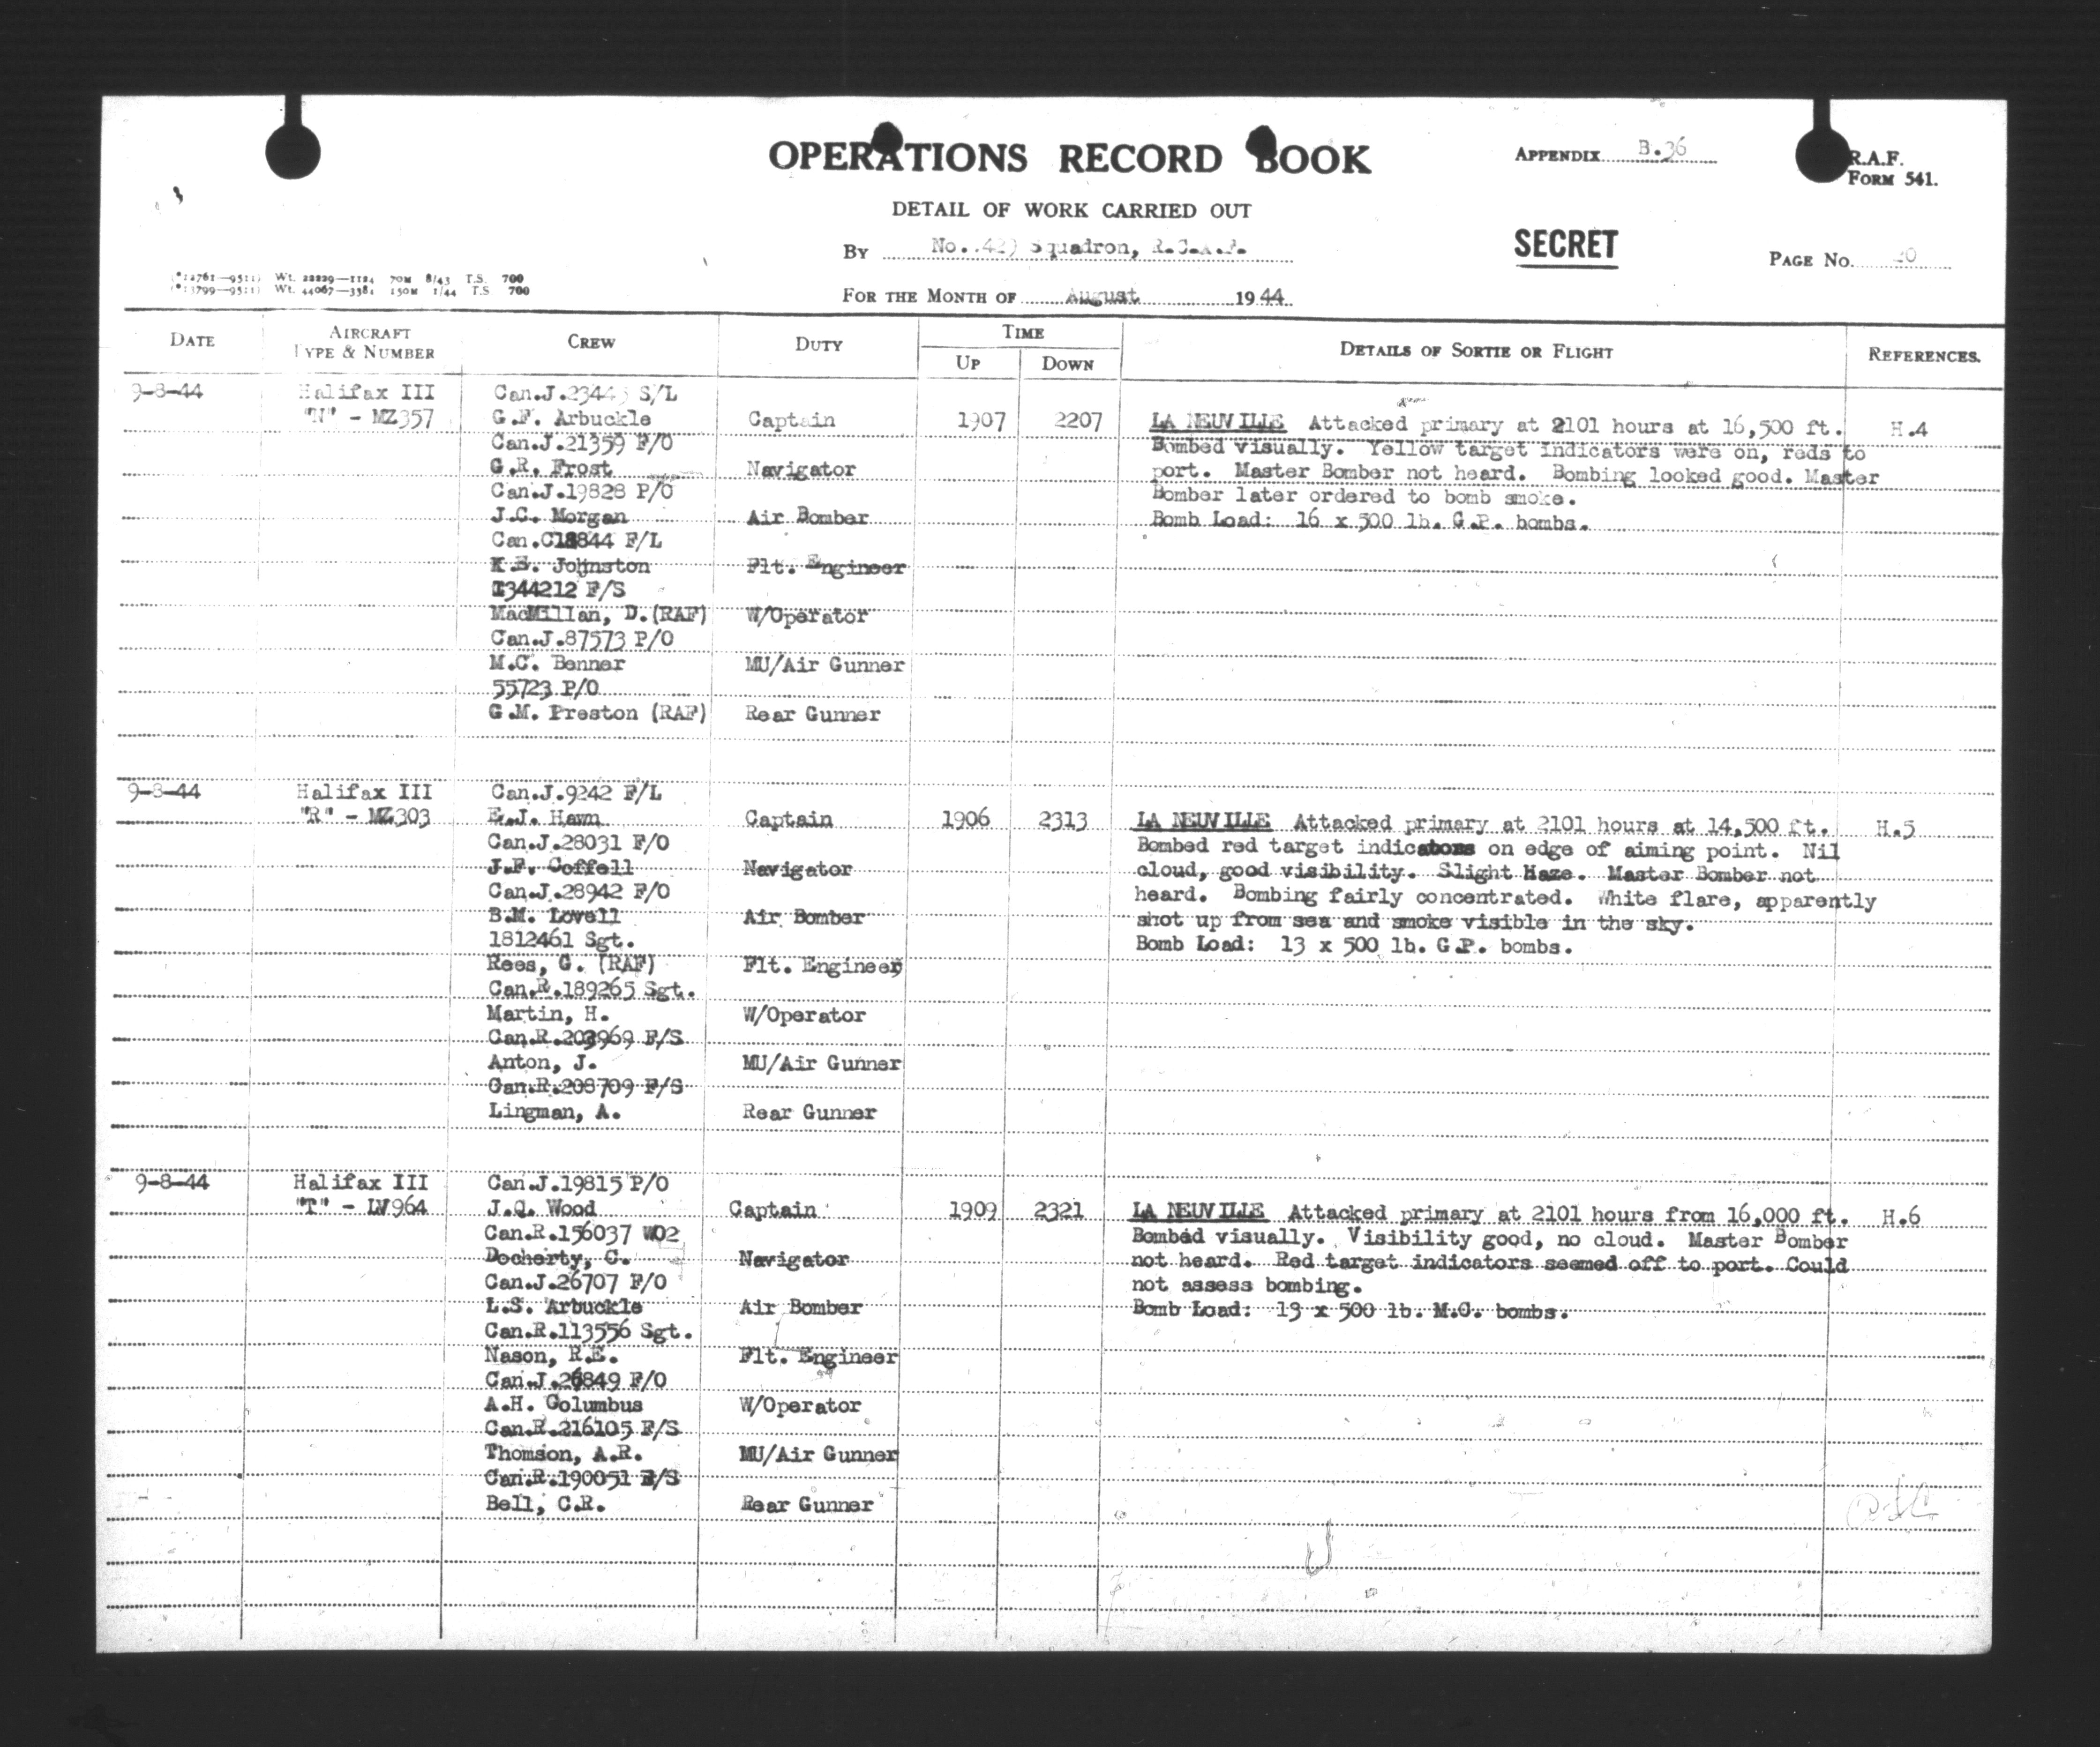 OPERATIONS RECORD BOOK
APPENDIX B.36
R.A.F.
FORM 541.
DETAIL OF WORK CARRIED OUT
By No. Squadron, R.C.A.F.
SECRET
PAGE No.
Wt. 22229—1124 70M 8/43 T.S. 700
Wt. 44067—3381 150M 1/44 T.S 700
FOR THE MONTH OF August 1944
DATE AIRCRAFT TYPE & NUMBER CREW DUTY TIME UP DOWN DETAILS OF SORTIE OR FLIGHT REFERENCES.
9-8-44 Halifax III Can.J. S/L
"N" - MZ357 G.F. Arbuckle Captain 1907 2207 LA NEUVILLE Attacked primary at 2101 hours at 16,500 ft. H.4
Can.J.21359 F/O Bombed visually. Yellow target indicators were on, reds to
G.R. Frost Navigator port. Master Bomber not heard. Bombing looked good. Master
Can.J.19828 P/O Bomber later ordered to bomb smoke.
J.C. Morgan Air Bomber Bomb Load: 16 x 500 lb. G.P. bombs.
F/L
K.E. Johnston Flt. Engineer
F/S
MacMillan, D.(RAF) W/Operator
Can.J.87573 P/O
M.C. Benner MU/Air Gunner
55723 P/O
G.M. Preston (RAF) Rear Gunner
9-8-44 Halifax III Can.J.9242 F/L
"R" - MZ303 E.J. Hawn Captain 1906 2313 LA NEUVILLE Attacked primary at 2101 hours at 14,500 ft. H.5
Can.J.28031 F/O Bombed red target indicators on edge of aiming point. Nil
J.F. Coffell Navigator cloud, good visibility. Slight Haze. Master Bomber not
Can.J.28942 F/O heard. Bombing fairly concentrated. White flare, apparently
B.M. Lovell Air Bomber shot up from sea and smoke visible in the sky.
1812461 Sgt. Bomb Load: 13 x 500 lb. G.P. bombs.
Rees, G. (RAF) Flt. Engineer
Can.R.189265 Sgt.
Martin, H. W/Operator
Can.R.203969 F/S
Anton, J. MU/Air Gunner
Can.R.208709 F/S
Lingman, A. Rear Gunner
9-8-44 Halifax III Can.J.19815 P/O
"T" - LV964 J.Q. Wood Captain 1909 2321 LA NEUVILLE Attacked primary at 2101 hours from 16,000 ft. H.6
Can.R.156037 WO2 Bombed visually. Visibility good, no cloud. Master Bomber
Docherty, C. Navigator not heard. Red target indicators seemed off to port. Could
Can.J.26707 F/O not assess bombing.
L.S. Arbuckle Air Bomber Bomb Load: 13 x 500 lb. M.C. bombs.
Can.R.113556 Sgt.
Nason, R.E. Flt. Engineer
Can.J.26849 F/O
A.H. Columbus W/Operator
Can.R.216105 F/S
Thomson, A.R. MU/Air Gunner
Can.R.190051 F/S
Bell, C.R. Rear Gunner